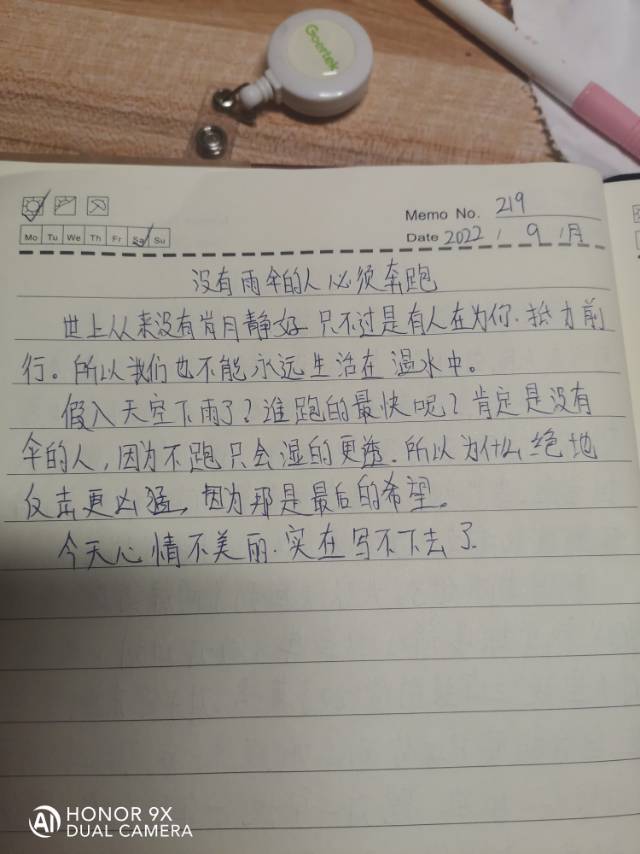 Goertek
Memo No. 219
Mo Tu We Th Fr Sa Su
Date 2022 / 9 / 月
没有雨伞的人必须奔跑
世上从来没有岁月静好 只不过是有人在为你.拯力前
行。所以我们也不能永远生活在温水中。
假入天空下雨了?谁跑的最快呢?肯定是没有
伞的人,因为不跑只会湿的更透.所以为什么绝地
反击更凶猛,因为那是最后的希望。
今天心情不美丽.实在写不下去了.
HONOR 9X
DUAL CAMERA